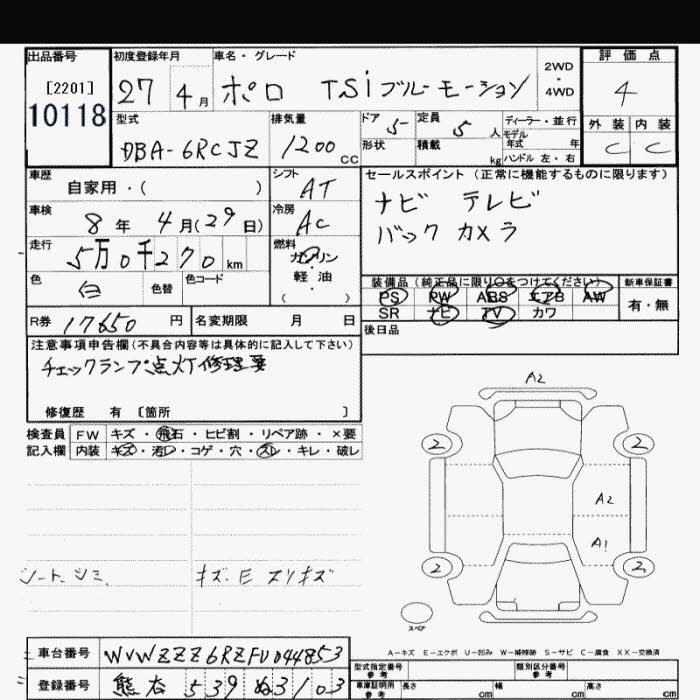 出品番号
[2201]
10118
初度登録年月
27 4月
車名・グレード
ポロ TSiブルーモーション
2WD
・
4WD
評価点
4
外装 内装
C C
型式
DBA-6RCJZ
排気量
1200 CC
ドア 5
形状
定員 5 人
積載 kg
ディーラー・並行
モデル
年式 年
ハンドル 左・右
車歴
自家用・( )
シフト
AT
車検
8年 4月(29日)
冷房
AC
走行
5万0千270 km
燃料
ガソリン
・
軽油
( )
色
白
色替
色コード
R券 17650 円
名変期限 月 日
セールスポイント(正常に機能するものに限ります)
ナビ テレビ
バックカメラ
装備品(純正品に限り○をつけてください)
PS PW ABS エアB AW
SR ナビ TV カワ
新車保証書
有・無
後日品
注意事項申告欄(不具合内容等は具体的に記入して下さい)
チェックランプ点灯修理要
修復歴 有 〔箇所 〕
検査員
記入欄
FW キズ・飛石・ヒビ割・リペア跡・×要
内装 キズ・汚レ・コゲ・穴・スレ・キレ・破レ
シート シミ
キズ.E スリキズ
A2
2 2
A2
A1
2 2
スペア
A-キズ E-エクボ U-凹み W-補修跡 S-サビ C-腐食 XX-交換済
車台番号 WVWZZZ6RZFU044853
登録番号 熊本 539 ぬ3103
型式指定番号
参考
類別区分番号
参考
車庫証明用
参考
長さ cm
幅 cm
高さ cm